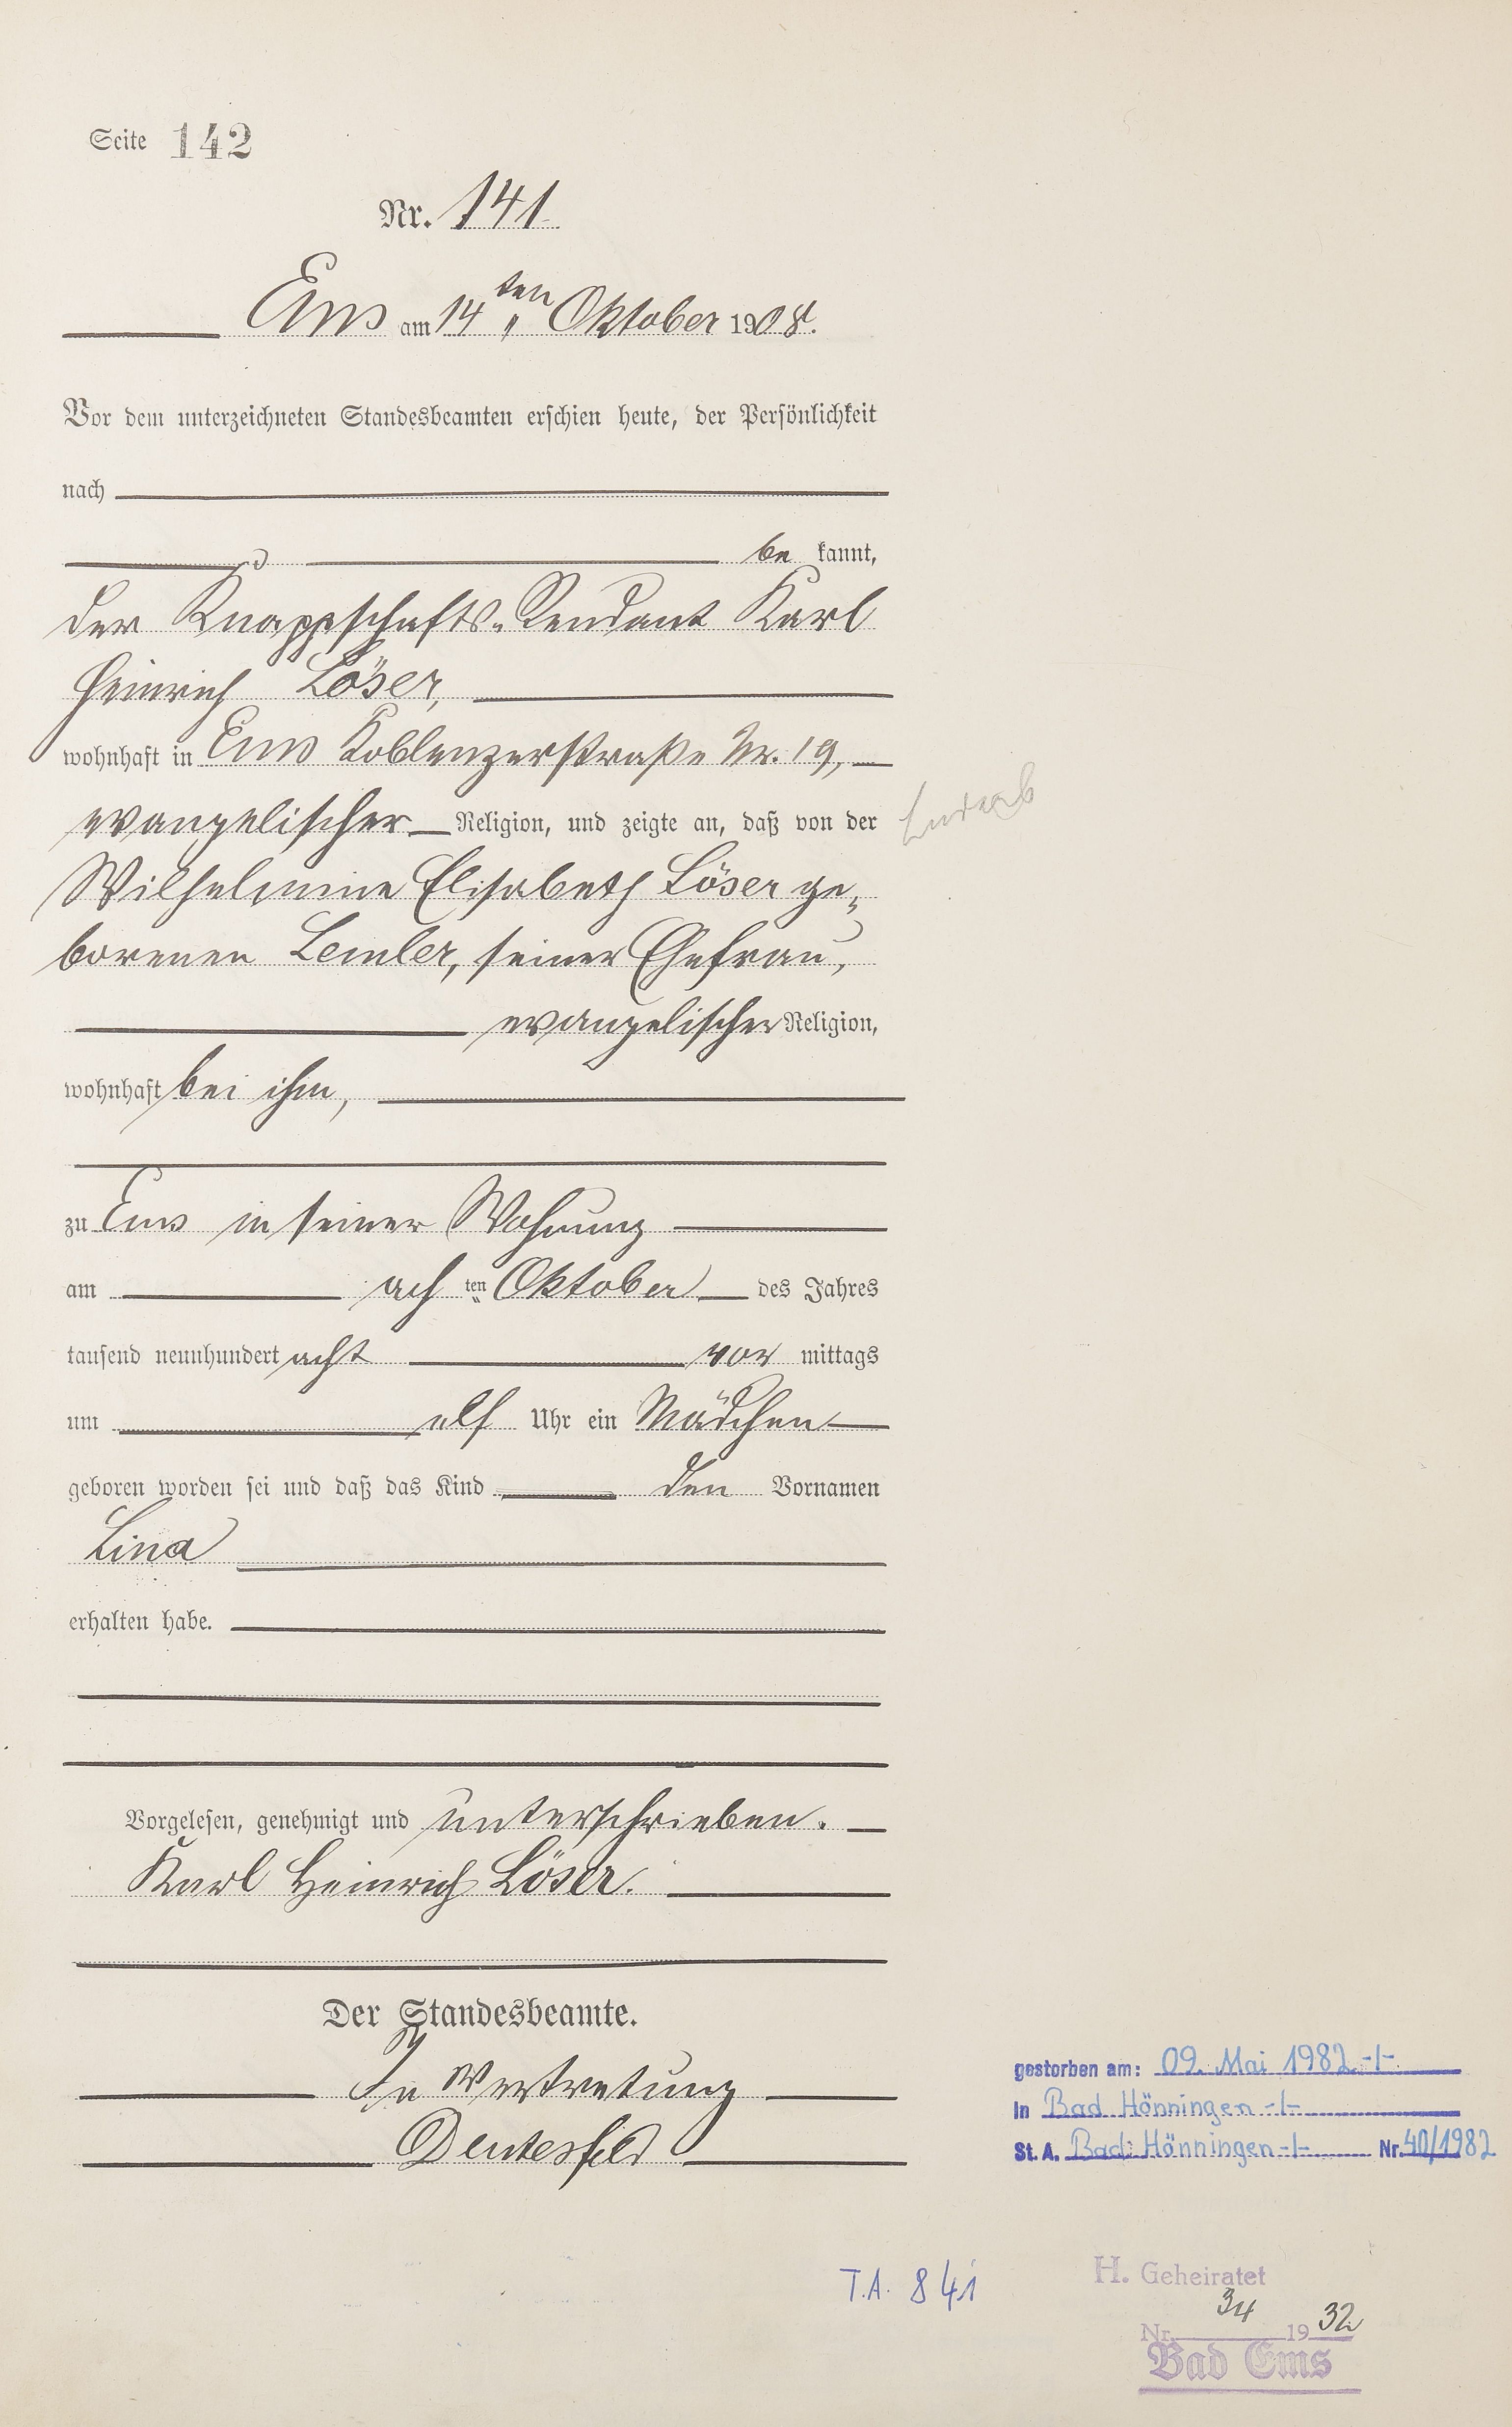 Seite 142
Nr. 141
Ems am 14ten Oktober 1908.
Vor dem unterzeichneten Standesbeamten erschien heute, der Persönlichkeit
nach
be kannt,
der Knappschafts-Rendant Karl
Heinrich Löser,
wohnhaft in Ems Koblenzerstraße Nr. 19,
evangelischer Religion, und zeigte an, daß von der
Wilhelmine Elisabeth Löser ge-
borenen Lemler, seiner Ehefrau,
evangelischer Religion,
wohnhaft bei ihm,
zu Ems in seiner Wohnung
am ach ten Oktober des Jahres
tausend neunhundert acht vor mittags
um elf Uhr ein Mädchen
geboren worden sei und daß das Kind den Vornamen
Lina
erhalten habe.
Vorgelesen, genehmigt und unterschrieben.
Karl Heinrich Löser.
Der Standesbeamte.
In Vertretung
Deutesfeld
gestorben am: 09. Mai 1982 -/-
in Bad Hönningen -/-
St. A. Bad Hönningen -/- Nr. 40/1982
T.A. 841
H. Geheiratet
Nr. 34 1932
Bad Ems